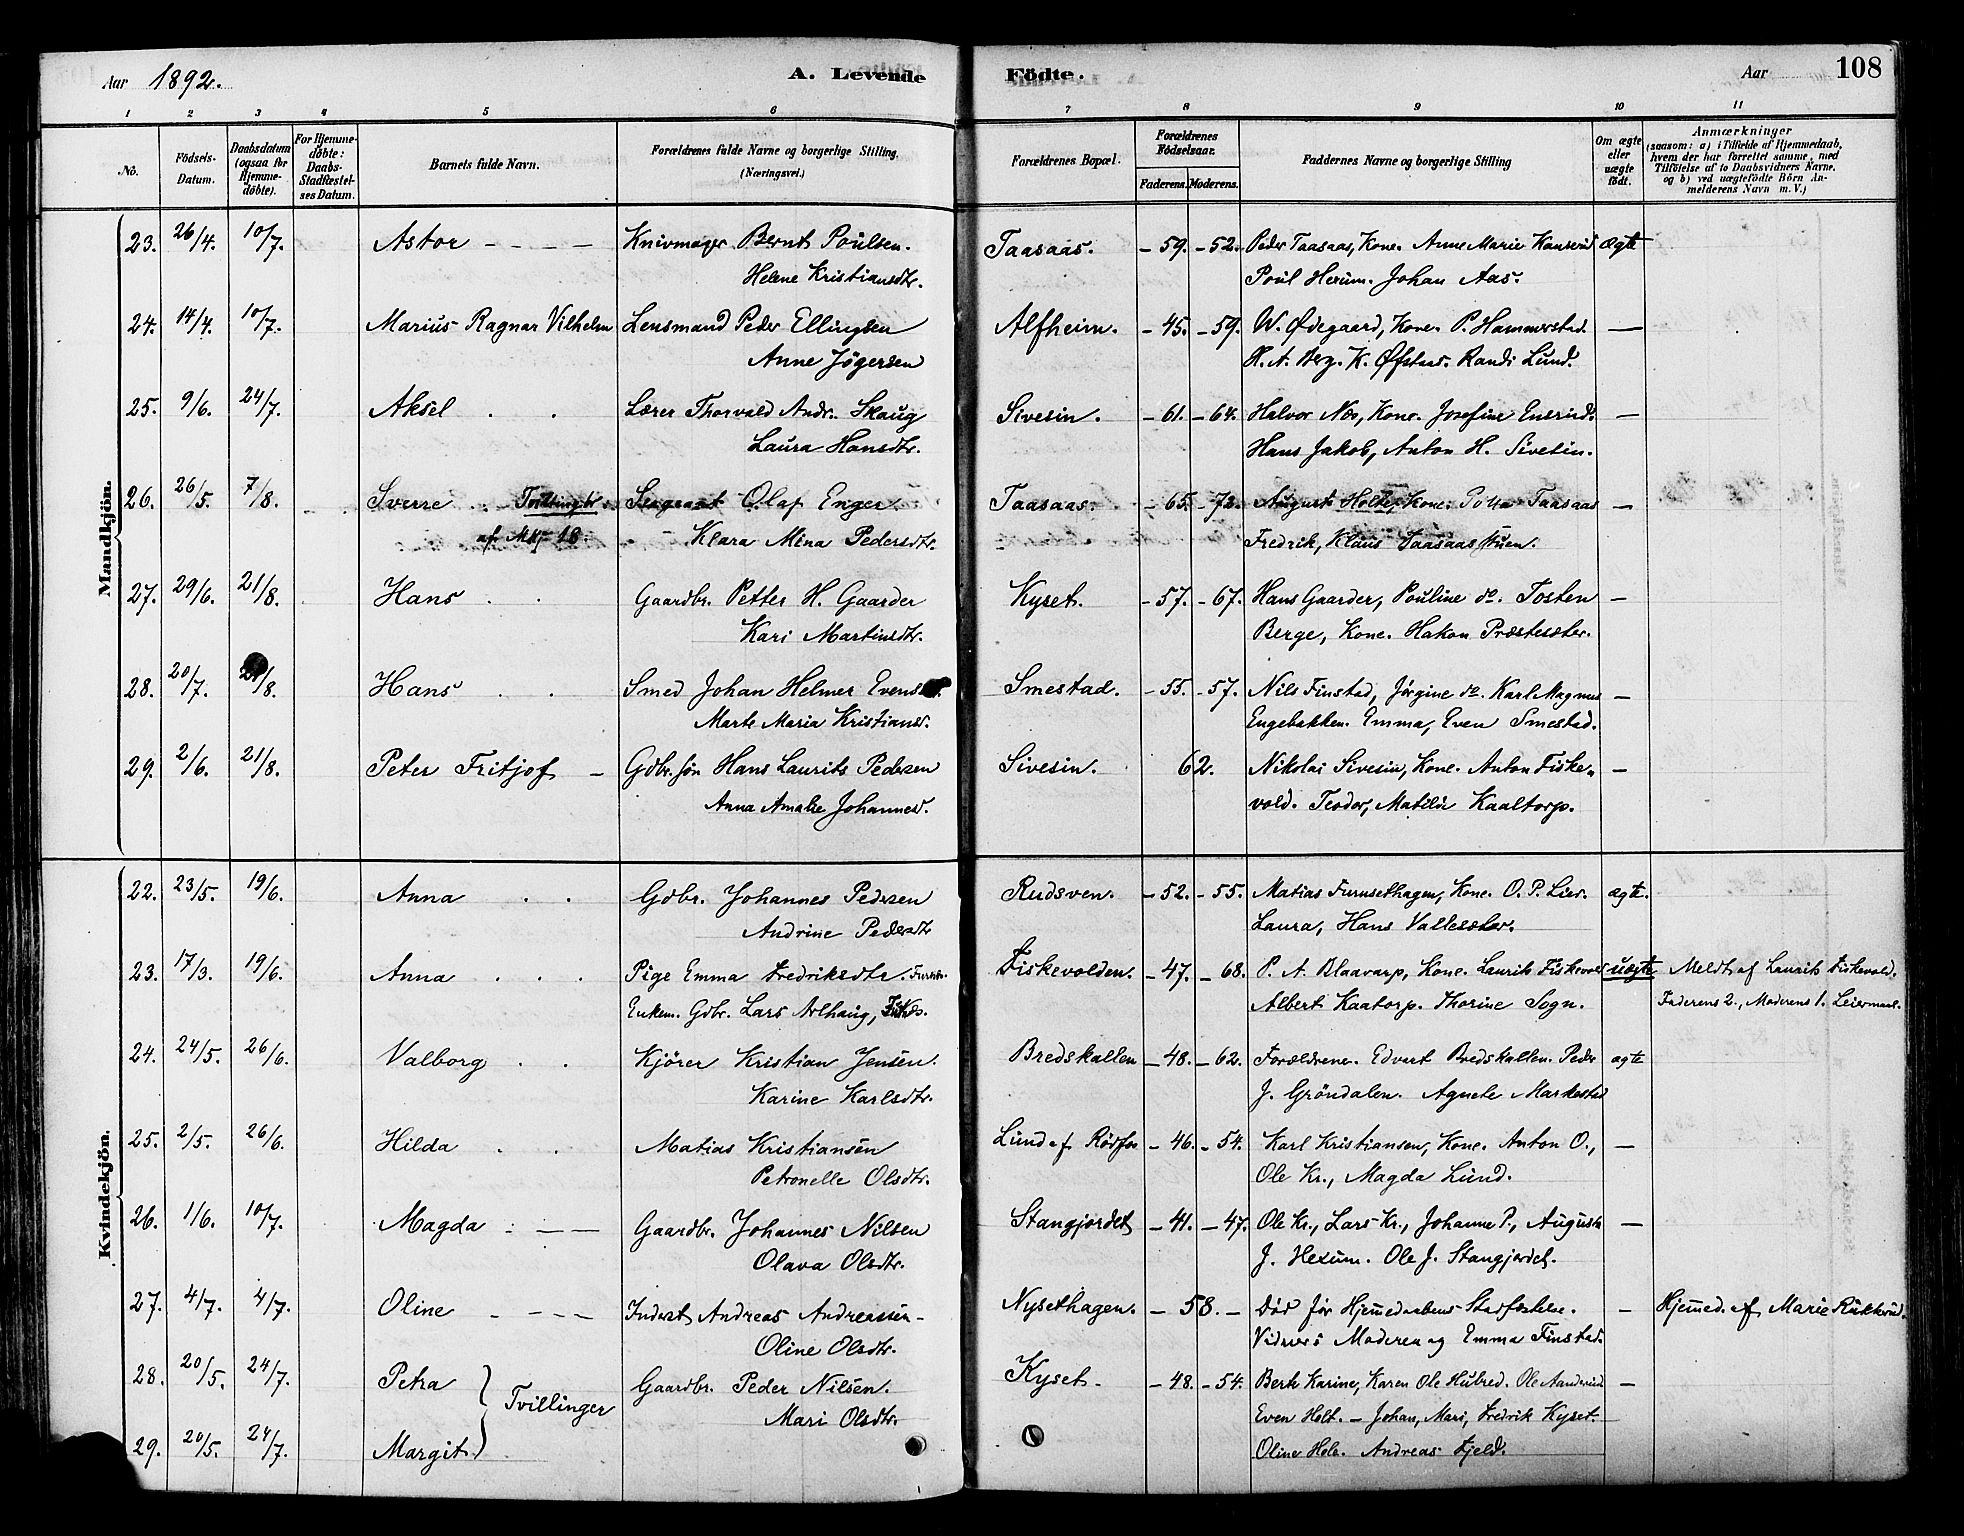 Aar 1892. A. Levende Födte. Aar 108
1 2 3 4 5 6 7 8 9 10 11
No. Födsels-Datum. Daabsdatum (ogsaa for Hjemmedöbte). For Hjemmedöbte: Daabs-Stadfæstelses Datum. Barnets fulde Navn. Forældrenes fulde Navne og borgerlige Stilling. (Næringsvei.) Forældrenes Bopæl. Forældrenes Födselsaar. Faderens. Moderens. Faddernes Navne og borgerlige Stilling Om ægte eller uægte födt. Anmærkninger (saasom: a) i Tilfælde af Hjemmedaab, hvem der har forrettet samme, med Tilföielse af to Daabsvidners Navne, og b) ved uægtefödte Börn Anmelderens Navn m. V.)
Mandkjön.
23. 26/4. 10/7. Astor - - - - Knivmager Bernt Poulsen. Taasaas. - 59. - 52. Peder Taasaas, Kone. Anne Marie ægte
Helene Kristiansdtr. Poul Hexum. Johan Aas.
24. 14/4. 10/7. Marius Ragnar Vilhelm Lensmand Peder Ellingsen Alfheim. - 45. - 59. W. Ødegaard, Kone. P. Hammerstad. —
Anne Jögersen H. A. Berg. K. Øfstaas. Randi Lund.
25. 9/6. 24/7. Aksel . . Lærer Thorvald Andr. Skaug Sivesin. - 61. - 64. Halvor Næs, Kone. Josefine Ensrud. —
Laura Hansdtr. Hans Jakob, Anton H. Sivesin.
26. 26/5. 7/8. Sverre . . Sergeant Olaf Enger. Taasaas. - 65. - 72. August Holte, Kone. Taasaas —
Klara Mina Pedersdtr. Fredrik, Klaus Taasaasstuen.
27. 29/6. 21/8. Hans . . Gaardbr. Petter H. Gaarder Kyset. - 57. - 67. Hans Gaarder, Pouline do. Tosten —
Kari Martinsdtr. Berge, Kone. Hakon Præstesæter.
28. 20/7. 21/8. Hans . . Smed Johan Helmer Evens Smestad. - 55. - 57. Nils Finstad, Jörgine do. Karl Magnus —
Marte Maria Kristiansd. Engebakken. Emma, Even Smestad.
29. 2/6. 21/8. Peter Fritjof - Gdbr. sön Hans Laurits Pedersen Sivesin. 62. Nikolai Sivesin, Kone. Anton Fiske- —
Anna Amalie Johannesd. vold. Teodor, Matilde Kaaltorp.
Kvindekjön.
22. 23/5. 19/6. Anna . . Gdbr. Johannes Pedersen Rudsven. - 52. - 55. Matias Furusethagen, Kone. O. P. Lier. ægte.
Andrine Pedersdtr Laura, Hans Vallesæter.
23. 17/3. 19/6. Anna . . . Pige Emma Fredriksdtr. Fiskevolden. - 47. - 68. P. A. Blaavarp, Kone. Laurits Fiskevold uægte Meldt af Laurits Fiskevold.
Enkem. Gdbr. Lars Arlhaug, Albert Kaatorp. Thorine Sogn. Faderens 2., Moderens 1. Leiermaal.
24. 24/5. 26/6. Valborg . . Kjörer Kristian Jensen. Bredskallen - 48. - 62. Forældrene. Edvert Bredskallen. Peder ægte
Karine Karlsdtr. J. Gröndalen. Agnete Markestad
25. 2/5. 26/6. Hilda . . Matias Kristiansen Lund af Rødfos - 46. - 54. Karl Kristiansen, Kone. Anton O., —
Petronelle Olsdtr. Ole Kr., Magda Lund.
26. 1/6. 10/7. Magda - - - Gaardbr. Johannes Nilsen Stangjordet - 41. - 47. Ole Kr., Lars Kr., Johanne P., Augusta —
Olava Olsdtr. J. Hexum. Ole J. Stangjordet.
27. 4/7. 4/7. Oline - - - - Inderst Andreas Andreassen - Nysethagen. - 58. - Död för Hjemmedaabens Stadfæstelse. - Hjemmed. af Marie
Oline Olsdtr. Vidner: Moderen og Emma Finstad.
28. 20/5. 24/7. Petra } Tvillinger Gaardbr. Peder Nilsen. Kyset. - 48. - 54. Berte Karine, Karen Ole Hubred. Ole —
Mari Olsdtr. Even Holt. - Johan, Mari, Fredrik Kyset
29. 20/5. 24/7. Margit Oline Andreas Fjeld.